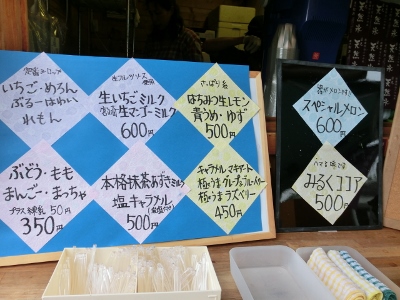 いちご・めろん
ぶるーはわい
れもん
生フルーツソース
使用
生いちごミルク
生マンゴーミルク
600円
さっぱり系
はちみつ生レモン
青うめ・ゆず
500円
スペシャルメロン
600円
ぶどう・もも
まんご・まっちゃ
プラス練乳 50円
350円
本格抹茶あずきミルク
塩キャラメル
500円
キャラメルマキアート
極うまラズベリー
450円
みるくココア
500円